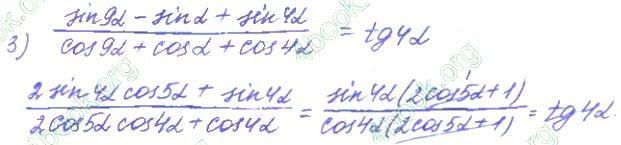 3) (sin9α − sinα + sin4α) / (cos9α + cosα + cos4α) = tg4α
(2sin4α cos5α + sin4α) / (2cos5α cos4α + cos4α) = (sin4α(2cos5α+1)) / (cos4α(2cos5α+1)) = tg4α.